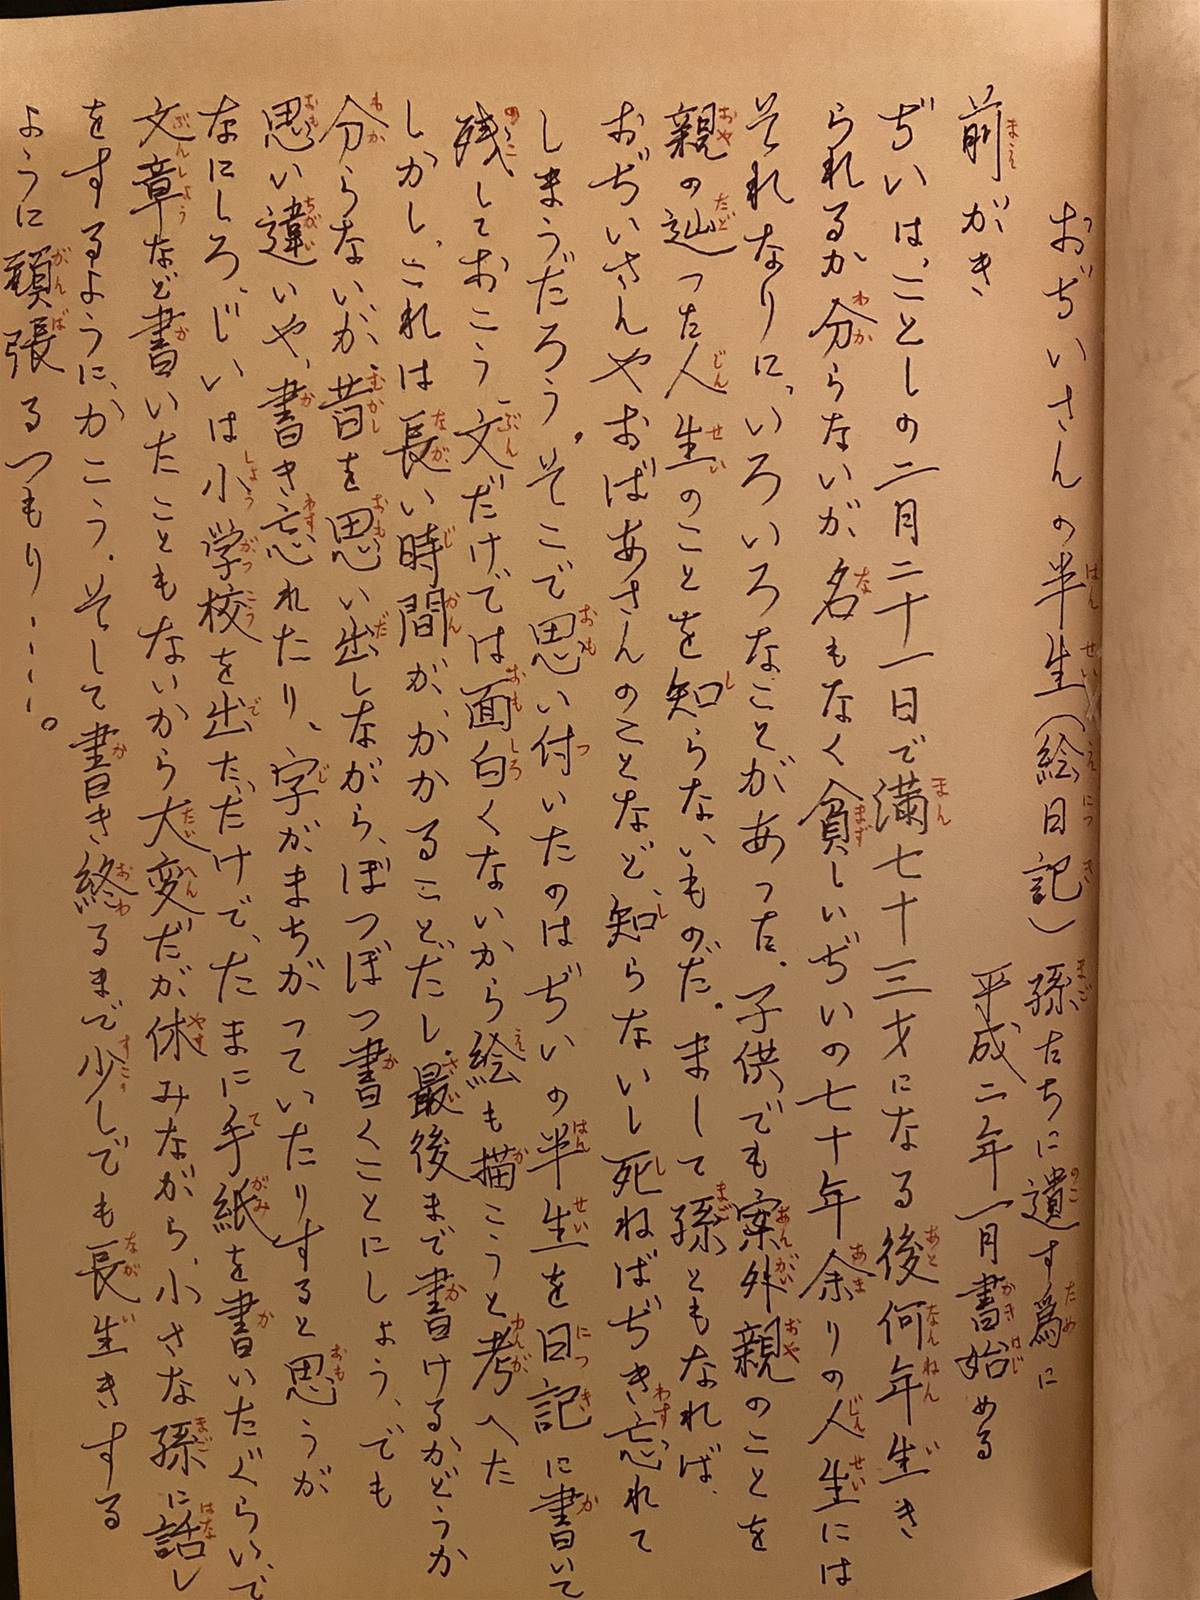 おぢいさんの半生(絵日記)孫たちに遺す為に
前がき 平成二年一月書始める
ぢいは、ことしの二月二十一日で満七十三才になる後何年生き
られるか分らないが、名もなく貧しいぢいの七十年余りの人生には
それなりに、いろいろなことがあった。子供でも案外親のことを
親の辿った人生のことを知らないものだ。まして孫ともなれば、
おぢいさんやおばあさんのことなど、知らないし死ねばぢき忘れて
しまうだろう。そこで思い付いたのはぢいの半生を日記に書いて
残しておこう、文だけでは面白くないから絵も描こうと考へた
しかし、これは長い時間が、かかることだし、最後まで書けるかどうか
分らないが、昔を思い出しながら、ぼつぼつ書くことにしよう、でも
思い違いや、書き忘れたり、字がまちがっていたりすると思うが
なにしろ、じいは小学校を出た、だけで、たまに手紙を書いたぐらいで
文章など書いたこともないから大変だが、休みながら、小さな孫に話し
をするように、かこう。そして書き終るまで少しでも長生きする
ように頑張るつもり・・・・。